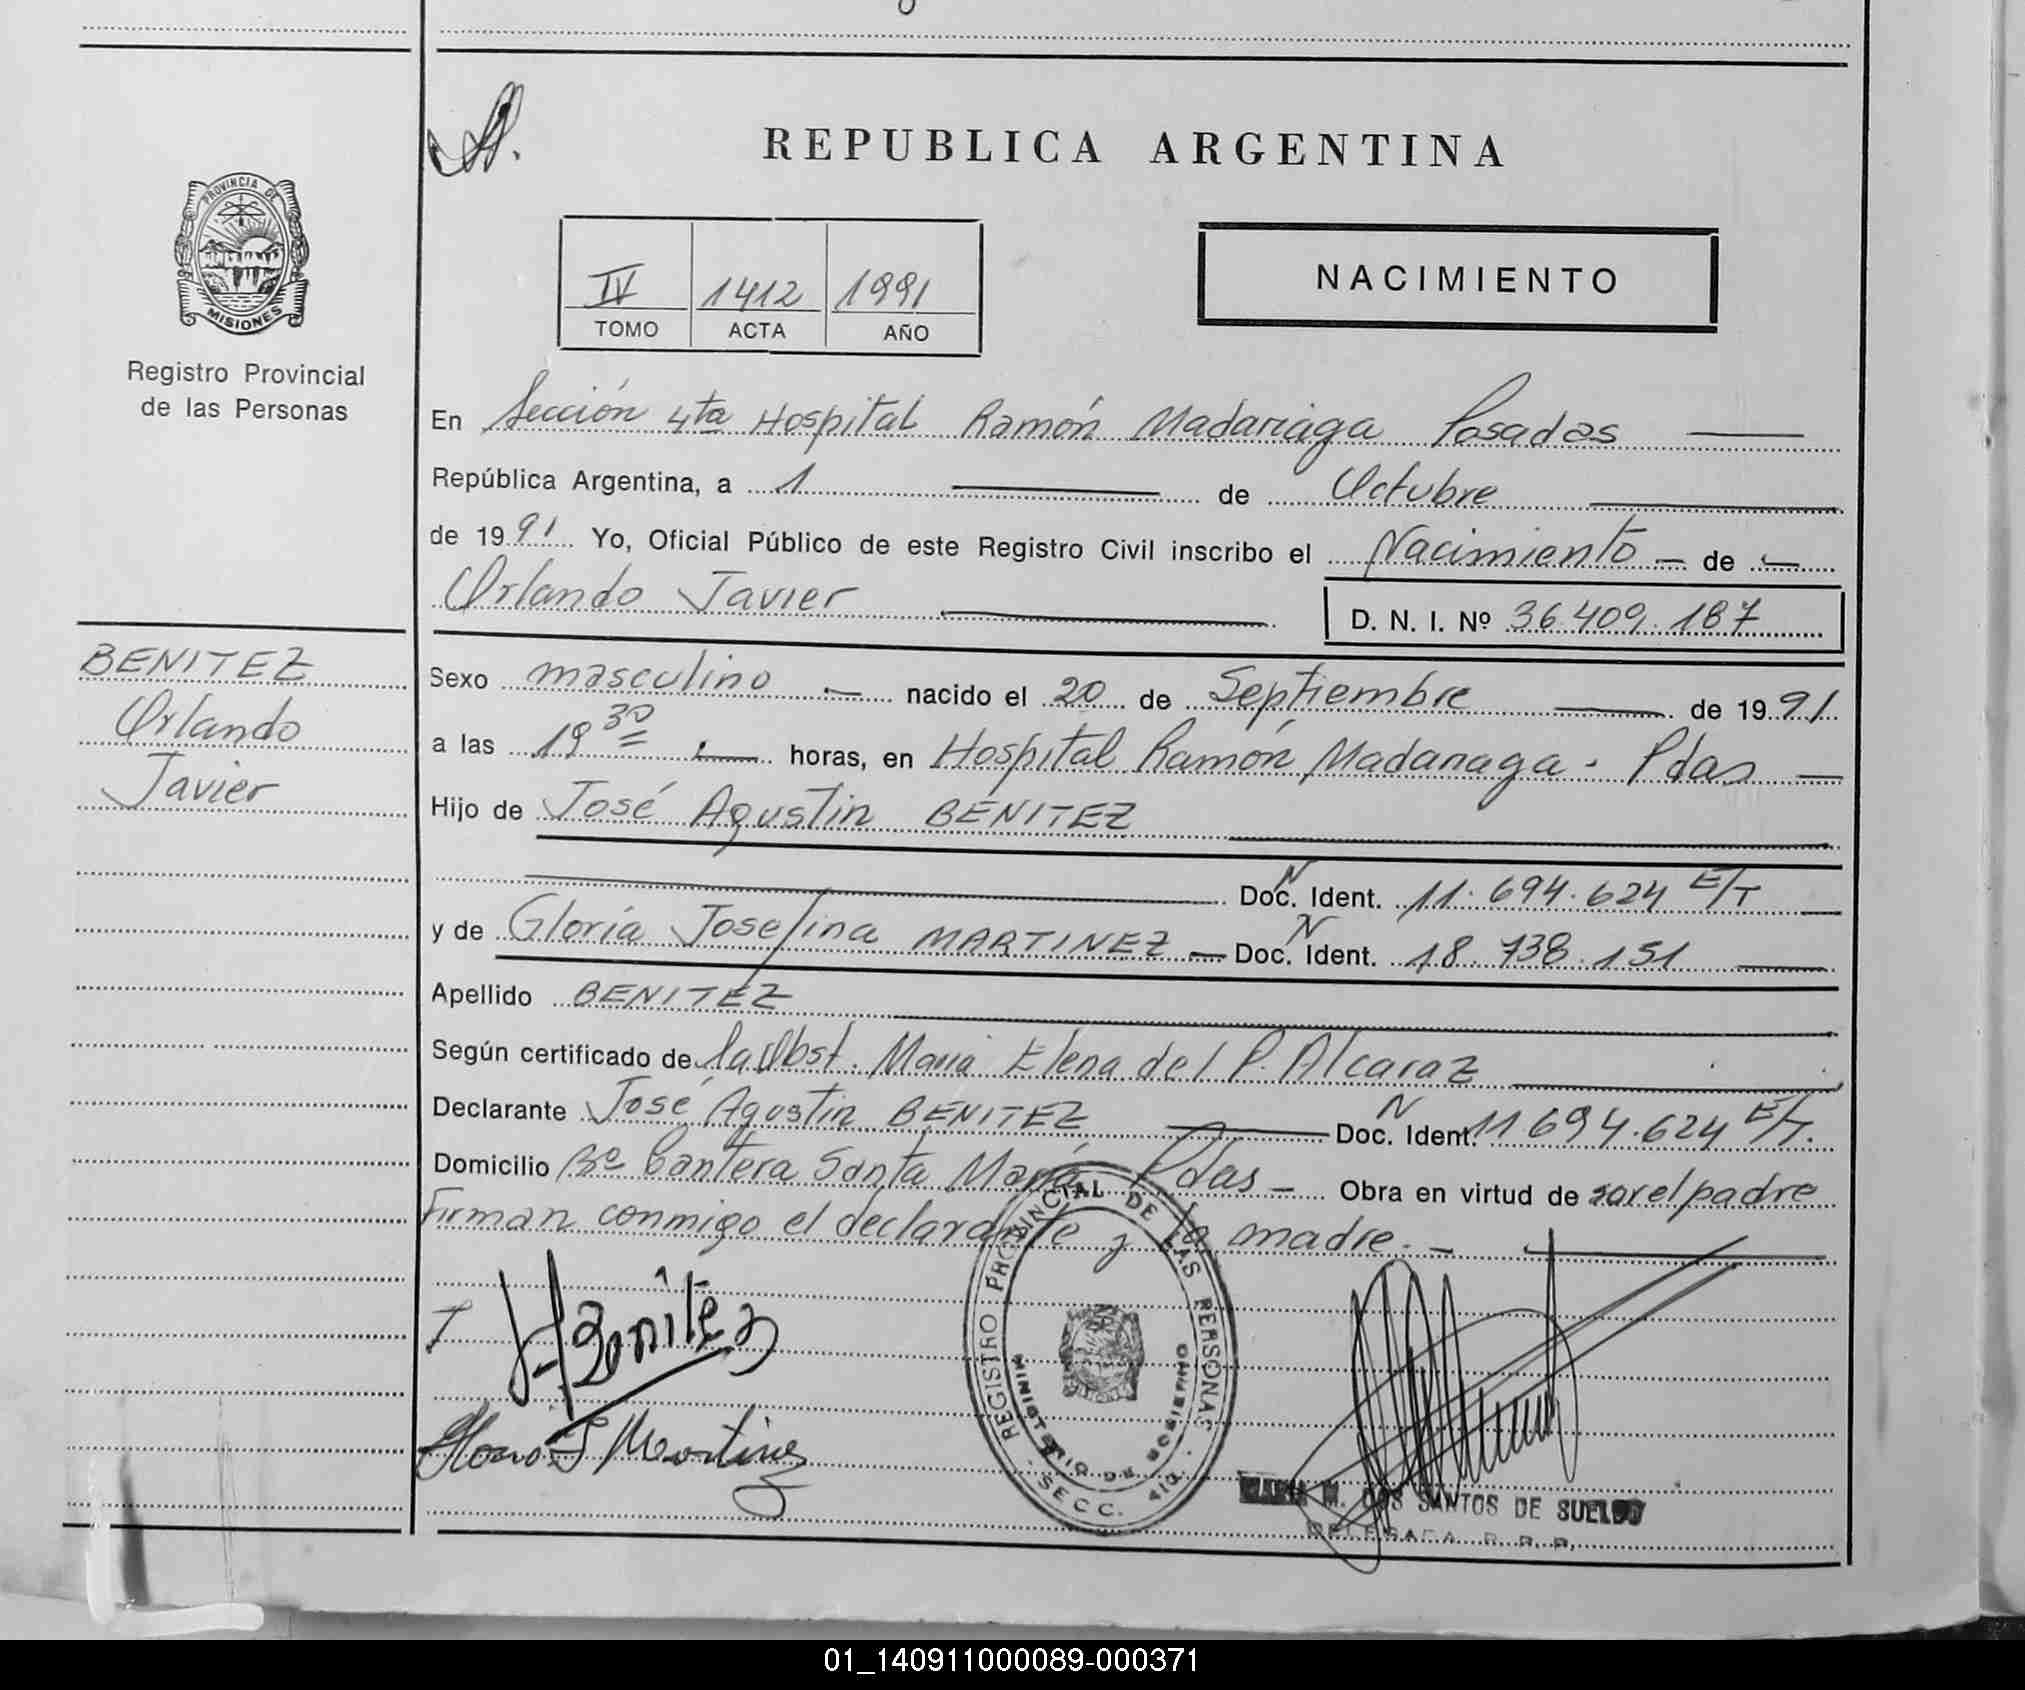 REPUBLICA ARGENTINA
PROVINCIA DE
MISIONES
Registro Provincial
de las Personas
IV 1412 1991
TOMO ACTA AÑO
NACIMIENTO
En Sección 4ta Hospital Ramón Madariaga Posadas
República Argentina, a 1 de Octubre
de 1991 Yo, Oficial Público de este Registro Civil inscribo el Nacimiento de
Orlando Javier D. N. I. Nº 36.409.187
BENITEZ
Orlando
Javier
Sexo masculino nacido el 20 de Septiembre de 1991
a las 19 30 horas, en Hospital Ramón Madariaga. Pdas
Hijo de José Agustin BENITEZ
Doc. N Ident. 11.694.624 E/T
y de Gloria Josefina MARTINEZ Doc. N Ident. 18.738.151
Apellido BENITEZ
Según certificado de la Obst. Maria Elena del P. Alcaraz
Declarante José Agustin BENITEZ Doc. N Ident. 11.694.624 E/T.
Domicilio Bº Cantera Santa María Pdas Obra en virtud de ser el padre
Firman conmigo el declarante y la madre.
Benitez
Martinez
REGISTRO PROVINCIAL DE LAS PERSONAS
MINISTERIO DE GOBIERNO
SECC. 4ta.
MARIA M. DOS SANTOS DE SUELDO
DELEGADA R. P. P.
01_140911000089-000371